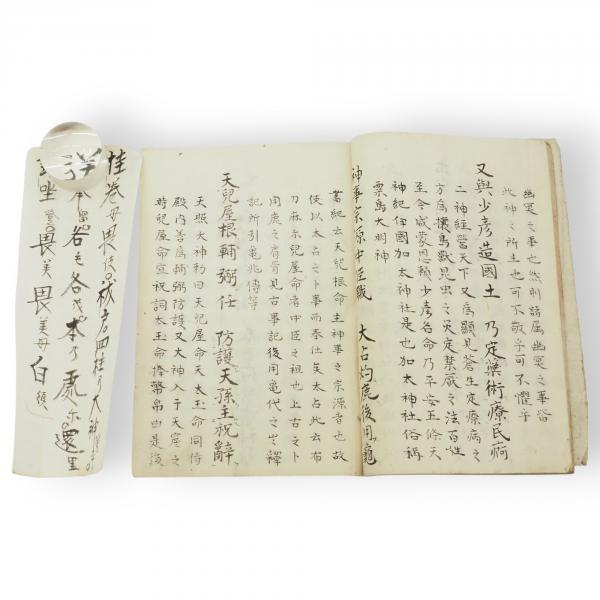 幽冥之事也然則諸属幽冥之事皆
此神之所主也可不敬乎可不懼乎
又與少彦造國土　乃定藥術療民痾
二神經營天下又爲顯見蒼生定療病之
方爲攘鳥獸昆虫之災定禁厭之法百姓
至今咸蒙恩頼少彦名命乃平安五條天
神紀伊國加太神社是也加太神社俗稱
粟島大明神
神事宗源中臣職　大占灼鹿後用龜
舊紀云天兒根命主神事之宗源者也故
使以太占之卜事而奉仕矣太占此云布
刀麻尓兒屋命者中臣之祖也上古之卜
用鹿之肩骨見古事記後用龜代之宍釋
記所引龜兆傳等
天兒屋根輔弼任　防護天孫主祝辭
天照大神勅曰天兒屋命天太玉命同侍
殿内善爲輔弼防護又大神入于天窟之
時兒屋命宣祝詞太玉命捧幣帛由是後
挂巻毋畏伎祓戸四柱乃大神
本谷毛各毛本乃處尓還里
坐畏美畏美毋白須